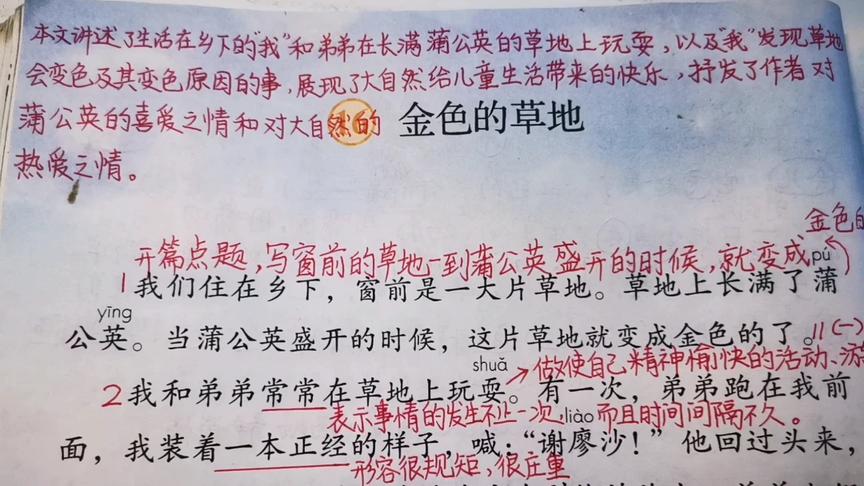 本文讲述了生活在乡下的“我”和弟弟在长满蒲公英的草地上玩耍,以及“我”发现草地
会变色及其变色原因的事,展现了大自然给儿童生活带来的快乐,抒发了作者对
蒲公英的喜爱之情和对大自然的
热爱之情。
16 金色的草地
金色的
开篇点题,写窗前的草地一到蒲公英盛开的时候,就变成
pú
1我们住在乡下,窗前是一大片草地。草地上长满了蒲
yīng
公英。当蒲公英盛开的时候,这片草地就变成金色的了。∥(一)
shuǎ
做使自己精神愉快的活动、游
2我和弟弟常常在草地上玩耍。有一次,弟弟跑在我前
表示事情的发生不止一次,而且时间间隔不久。
liào
面,我装着一本正经的样子,喊:“谢廖沙!”他回过头来,
形容很规矩,很庄重